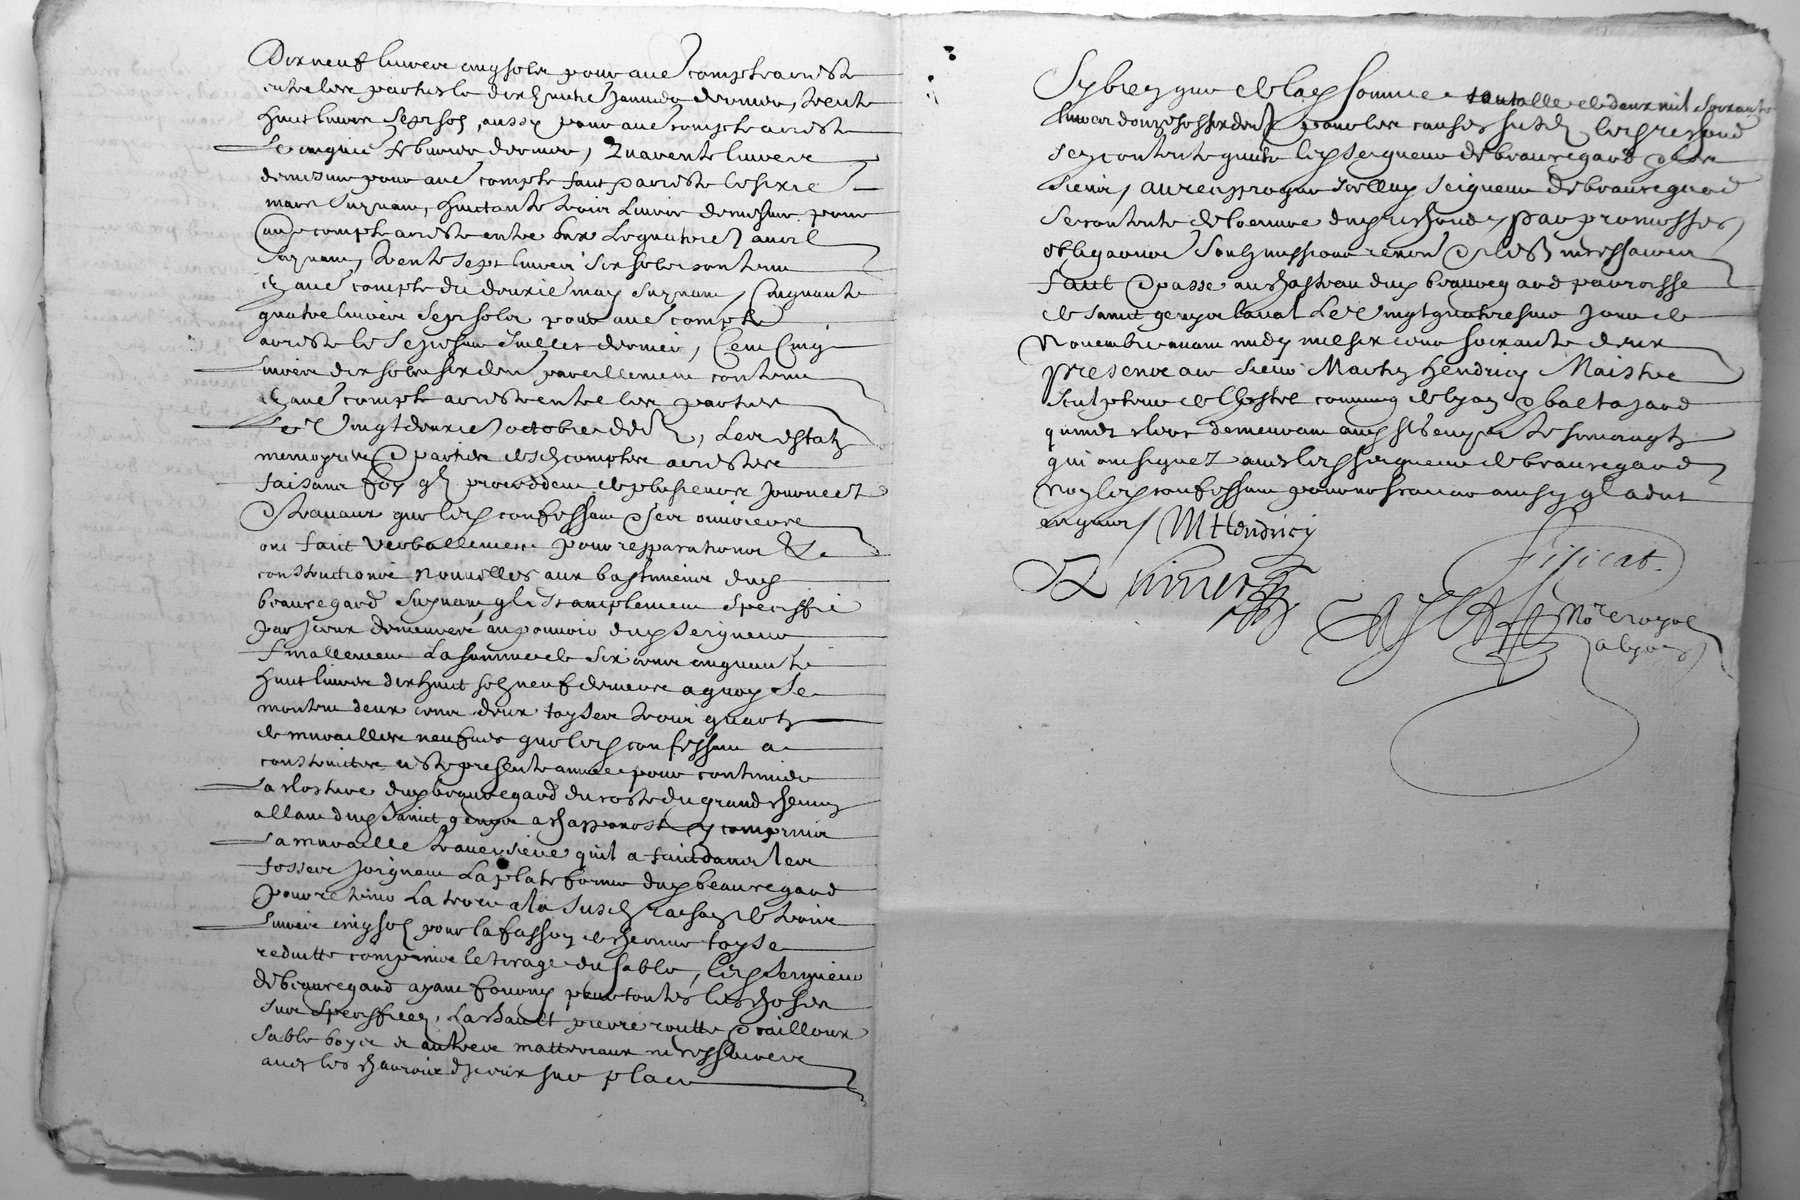 Dix neuf livres cinq solz pour aue compte arreste
entre les parties le dix h janvier dernier, trente
huict livres sept solz, aussy pour aue compte arreste
Le cinquie febvrier dernier, Quarente livres
demesme pour aue compte faict & arreste le sixie
mars suyvant, huictante trois livres demesme pour
compte arreste entre eux le quatorie avril
suyvant, trente sept livres six solz contenu
aue compte du douzie may suyvant, Cinquante
quatre livres sept solz pour aue compte
arreste le juillet dernier, Cent Cinq
livres dix solz six den pareillement contenu
aue compte arreste entre les parties
Le Vingt deuxie octobre, Les estatz
memoyres & parties desd comptes arrestees
faisant foy q procedder de plusieurs journees
& travaux que led confessant & ses ouvriers
ont faict verballement pour repparations &
constructions nouvelles aux bastimens dud
beauregard suyvant q est amplement speciffie
par iceux demeures au pouvoir dud seigneur
finallement La somme de six cens cinquante
huict livres dix huict solz neuf deniers a quoy se
montent deux cens deux toyses trois quartz
de murailles neufves que led confessant a
construictes ceste presente annee pour continuer
La closture dud beauregard du coste du grand chemin
allant dud Sainct genys a chapponost y comprins
La muraille traversiere quil a faict dans les
fosses joignant La plate forme dud beauregard
pour retenir La terre a la susd raison de trois
livres cinq solz pour la fasson de chacune toyse
reduitte comprins le tirage du sable, led Seigneur
de beauregard ayant fourny pour toutes les choses
sus speciffiees, La chault pierre routte & cailloux
sable boys et autres matteriaux necessaires
avec les charrois diceux sur place
Sy bien que de lad somme totalle de deux mil soixante
livres douze solz six den pour les causes susd led presfaict
se contente quitte led seigneur de beauregard & les
siens, au reciproque icelluy Seigneur de beauregard
se contente de loeuvre dud prisfaict, par promesses
obligations soubmissions renon & clauses necessaires
faict & passe au chasteau dud beauregard parroisse
de Sainct genys laval Le Vingt quatriesme jour de
Novembre avant midy mil six cens soixante deux
presence aux sieur Marthy Hendricy Maistre
sculpteur de Lhostel commung de lyon & baltazard
quimet clerc demeurant aud St genys tesmoingtz
qui ont signez avec led seigneur de beauregard
Non led confessant pour ne scavoir ainsy q l a dict
enquis / M Hendricy
Quimet
Fificat.
Nore royal
a lyon